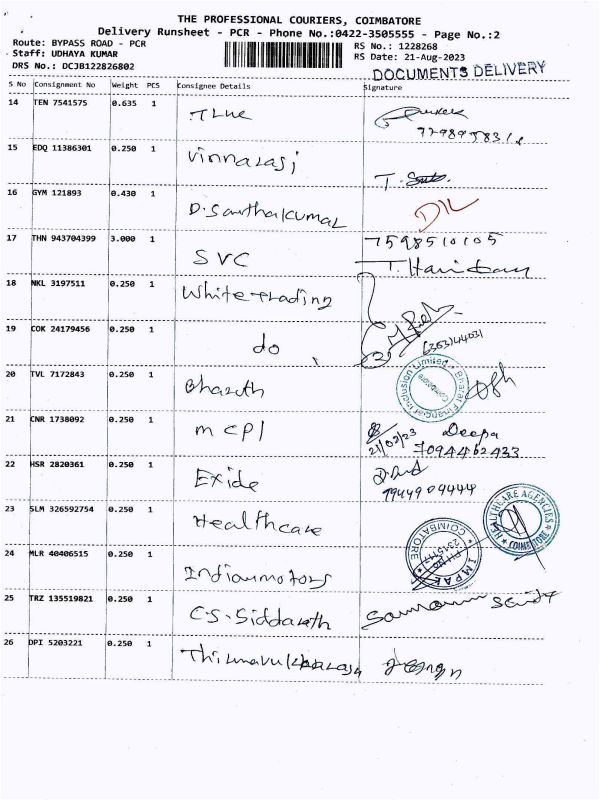 THE PROFESSIONAL COURIERS, COIMBATORE
Delivery Runsheet - PCR - Phone No.:0422-3505555 - Page No.:2
Route: BYPASS ROAD - PCR
RS No.: 1228268
Staff: UDHAYA KUMAR
RS Date: 21-Aug-2023
DRS No.: DCJB122826802
DOCUMENTS DELIVERY
S No Consignment No Weight PCS Consignee Details Signature
14 TEN 7541575 0.635 1
15 EDQ 11386301 0.250 1 Vinnarasi
16 GYM 121893 0.430 1 D. Santhakumar
17 THN 943704399 3.000 1 SVC 7598510105
18 NKL 3197511 0.250 1 White trading
19 COK 24179456 0.250 1 do
20 TVL 7172843 0.250 1 Bharath Bharat Financial Inclusion Limited
21 CNR 1738092 0.250 1 MCPI 21/08/23 Deepa
7094462433
22 HSR 2820361 0.250 1 Exide
9944904444
23 SLM 326592754 0.250 1 Healthcare HEALTHCARE AGENCIES COIMBATORE
24 MLR 40406515 0.250 1 Indianmotors COIMBATORE
25 TRZ 135519821 0.250 1 C.S. Siddarth
26 DPI 5203221 0.250 1